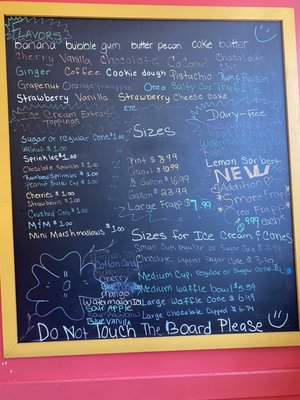 FLAVORS
banana bubble gum butter pecan cake batter
Cherry Vanilla Chocolate Coconut Chocolate Chip
Ginger Coffee Cookie dough Pistachio Rum Raisin
Grapenut Orange Pineapple Oreo Salty Car Truffle
Strawberry Vanilla Strawberry Cheese Cake
Ice Cream Extras
Toppings
ETC
Dairy-Free
Sugar or regular Cone $1.00
Walnut $1.00
Sprinkles $1.00
Chocolate Sprinkles $1.00
Rainbow Sprinkles $1.00
Peanut Butter Cup $1.00
Cherries $1.00
Strawberries $1.00
Crushed Oreo $1.00
M&M $1.00
Mini Marshmallows $1.00
Sizes
Pint $8.99
Quart $10.99
Large Frapp $7.99
Lemon Sorbet
NEW
Addition
Smore Frapp
Oreo Frapp
Each
Sizes for Ice Cream & Cones
Small Cup, regular or Sugar Cone
Chocolate Dipped Sugar Cone
Medium Cup, regular or Sugar Cone
Medium Waffle bowl $5.59
Large Waffle Cone $6.49
Large Chocolate Dipped $6.79
Cotton Candy
Cherry
Blue
Mango
Watermelon Ice
Sour Apple
Sour Rainbow
Blue Vanilla
Do Not Touch The Board Please